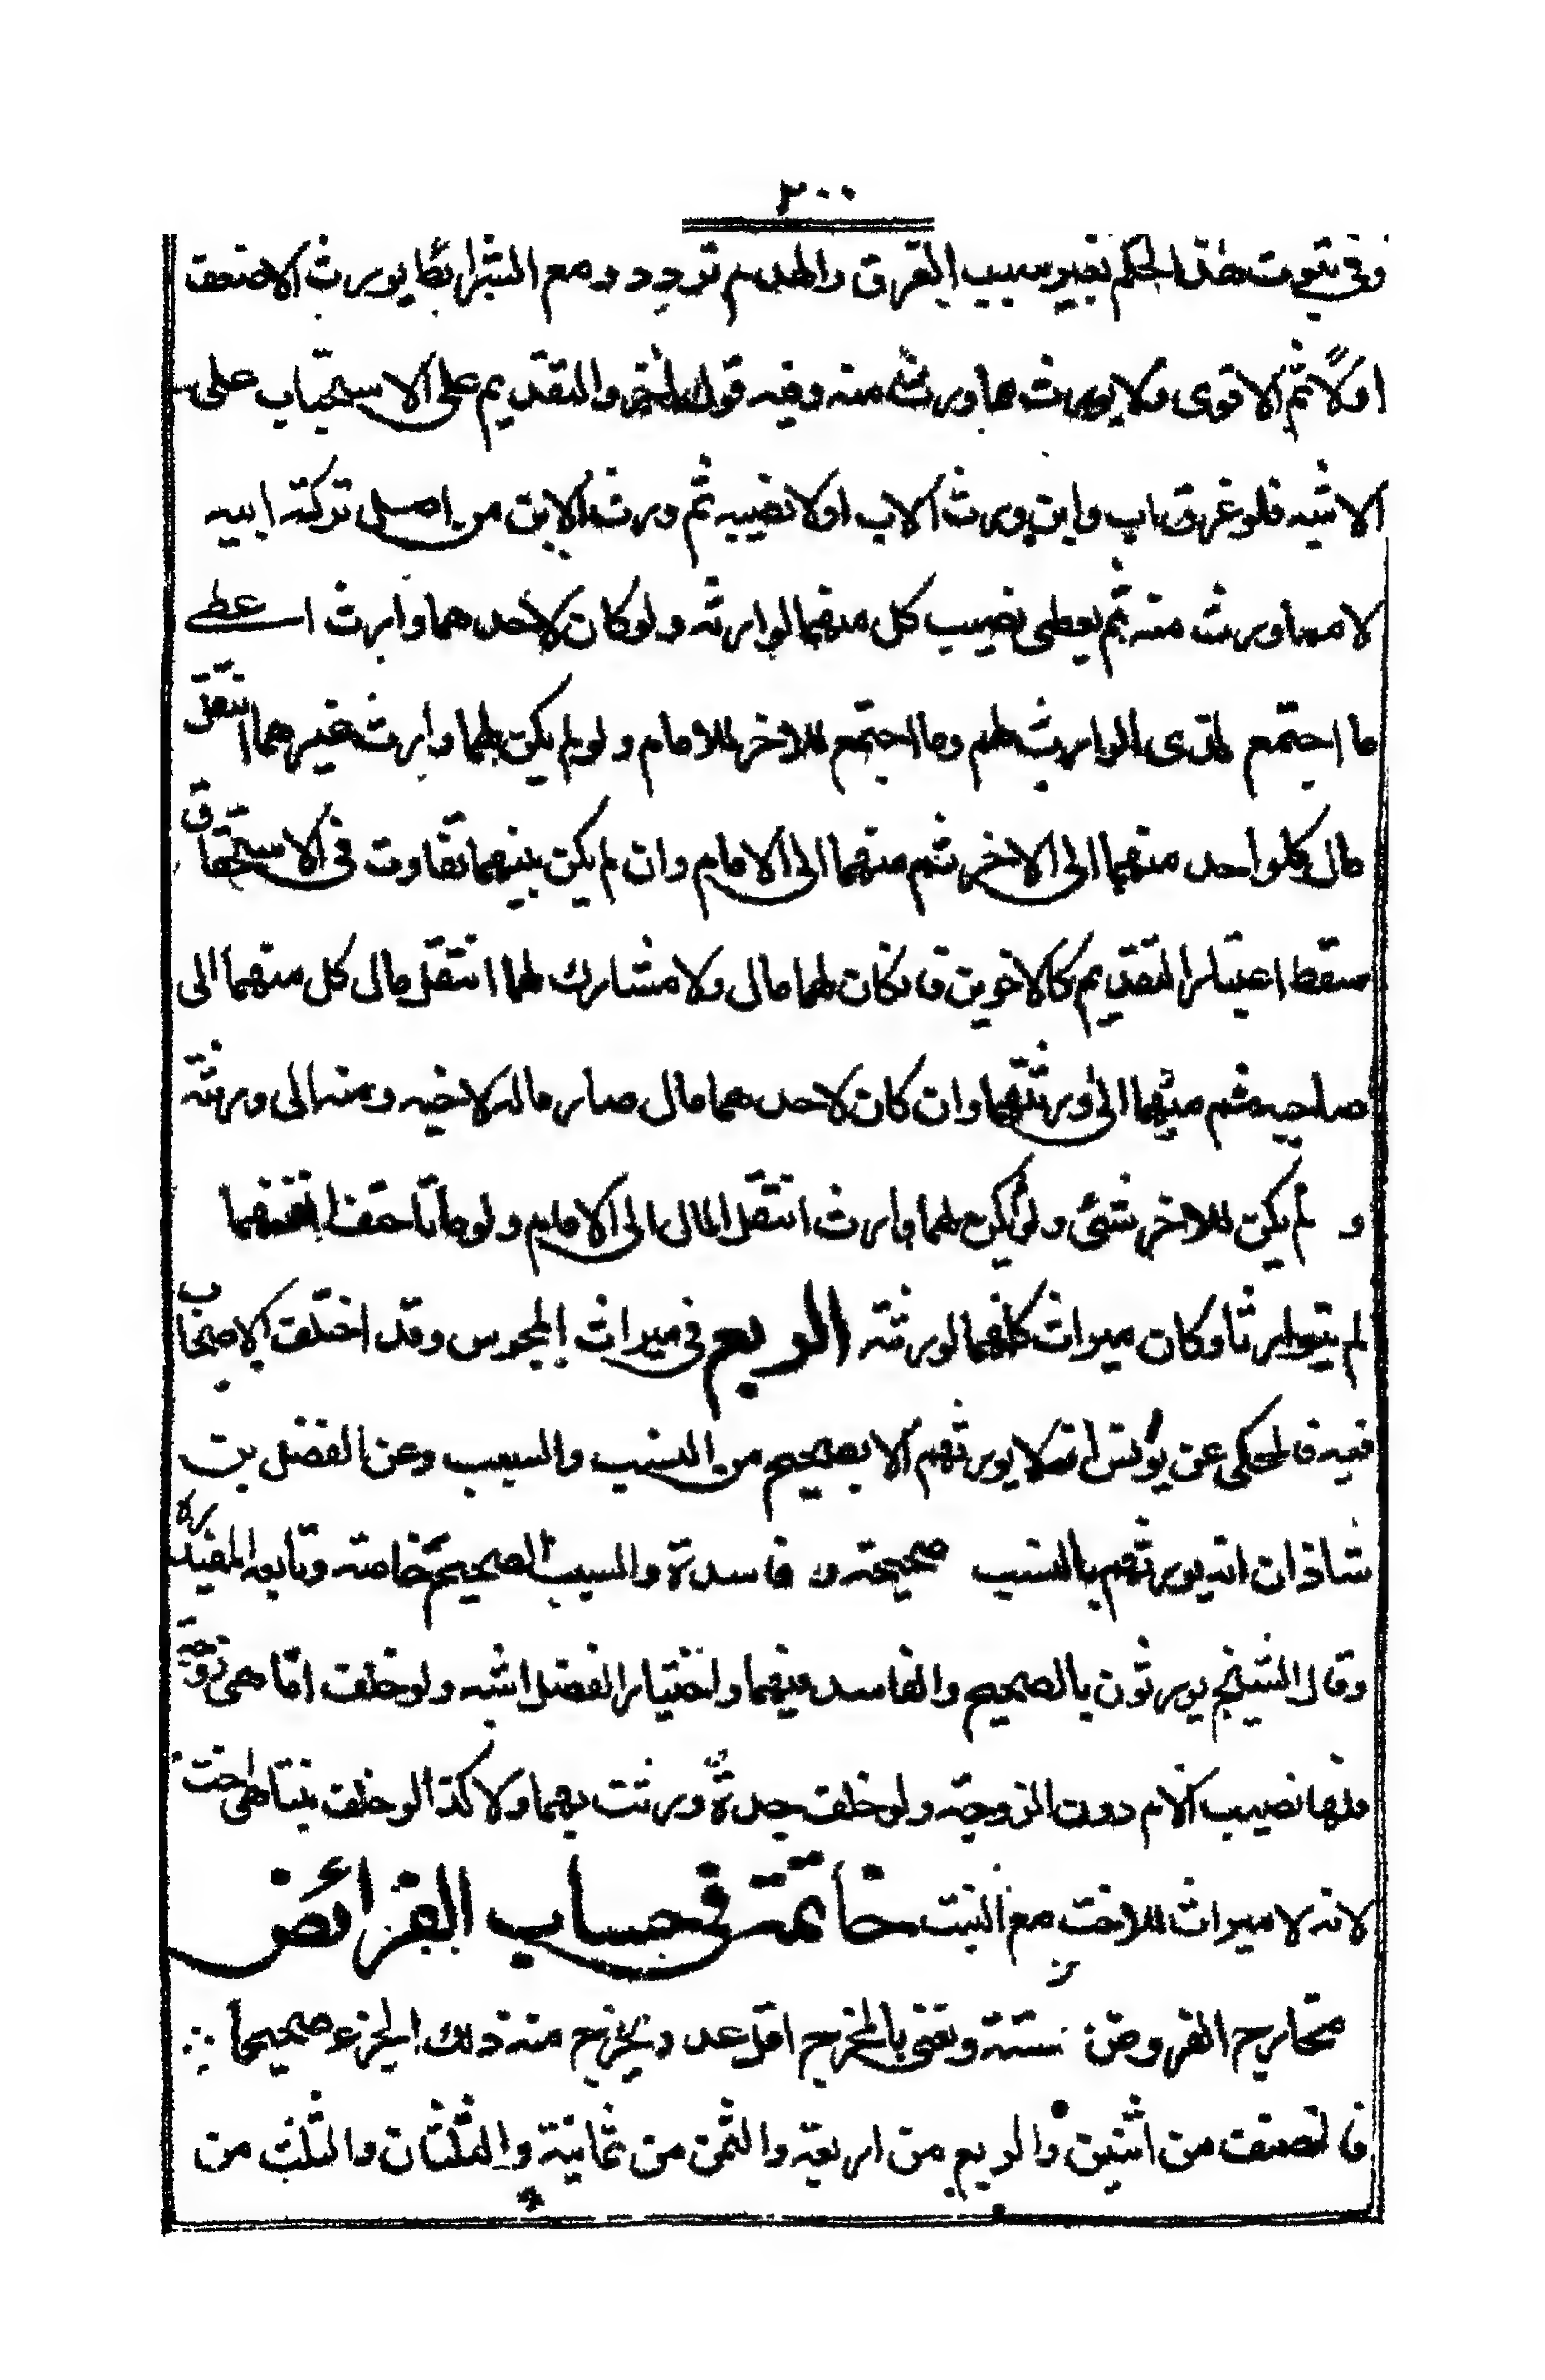 ٢٠٠
وفي ثبوت هذا الحكم بغير سبب الغرق والهدم تردد ومع الشرائط يورث الاضعف
اولاً ثم الاقوى ولا يورث مما ورث منه وفيه قول اخر والتقديم على الاستحباب على
الاشبه فلو غرق اب وابن ورث الاب اولا نصيبه ثم ورث الابن من اصل تركة ابيه
لا مما ورث منه ثم يعطى نصيب كل منهما لوارثه ولو كان لاحدهما وارث اعطى
ما اجتمع لذى الوارث لهم وما اجتمع للاخر للامام ولو لم يكن لهما وارث غيرهما انتقل
مال كل واحد منهما الى الاخر ثم منهما الى الامام وان لم يكن بينهما تفاوت في الاستحقاق
سقط اعتبار التقديم كالاخوين فان كان لهما مال ولا مشارك لهما انتقل مال كل منهما الى
صاحبه ثم منهما الى ورثتهما وان كان لاحدهما مال صار ماله لاخيه ومنه الى ورثته
و لم يكن للاخر شئ ولو لم يكن لهما وارث انتقل المال الى الامام ولو ماتا حتف انفهما
لم يتوارثا وكان ميراث كل منهما لورثته الربع في ميراث المجوس وقد اختلف الاصحاب
فيه فالمحكى عن يونس انه لا يورثهم الا بصحيح من النسب والسبب وعن الفضل بن
شاذان انه يورثهم بالنسب صحيحه و فاسدة والسبب الصحيح خاصة وتابعه المفيد ره
وقال الشيخ يورثون بالصحيح والفاسد فيهما واختيار الفضل اشبه ولو خلف امّا هى زوجة
فلها نصيب الام دون الزوجة ولو خلف جدة ورثت بهما ولا كذا لو خلف بنتا هى اخت
لانه لا ميراث للاخت مع البنت خاتمة في حساب الفرائض
مخارج الفروض ستة ونعنى بالمخرج اقل عدد يخرج منه ذلك الجزء صحيحاً
فالنصف من اثنين والربع من اربعة والثمن من ثمانية والثلثان والثلث من